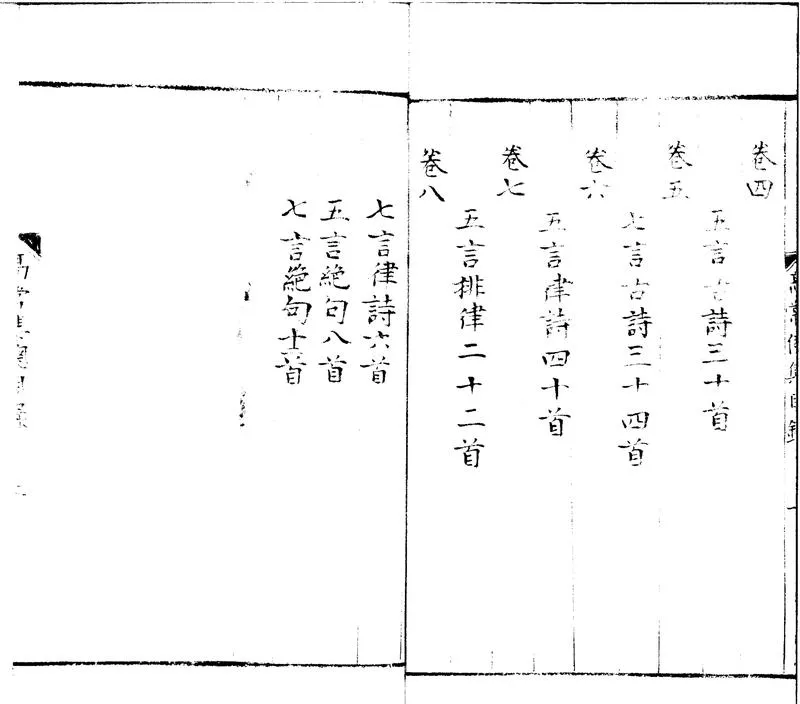 卷四
五言古詩三十首
卷五
七言古詩三十四首
卷六
五言律詩四十首
卷七
五言排律二十二首
卷八
七言律詩六首
五言絶句八首
七言絶句十一首